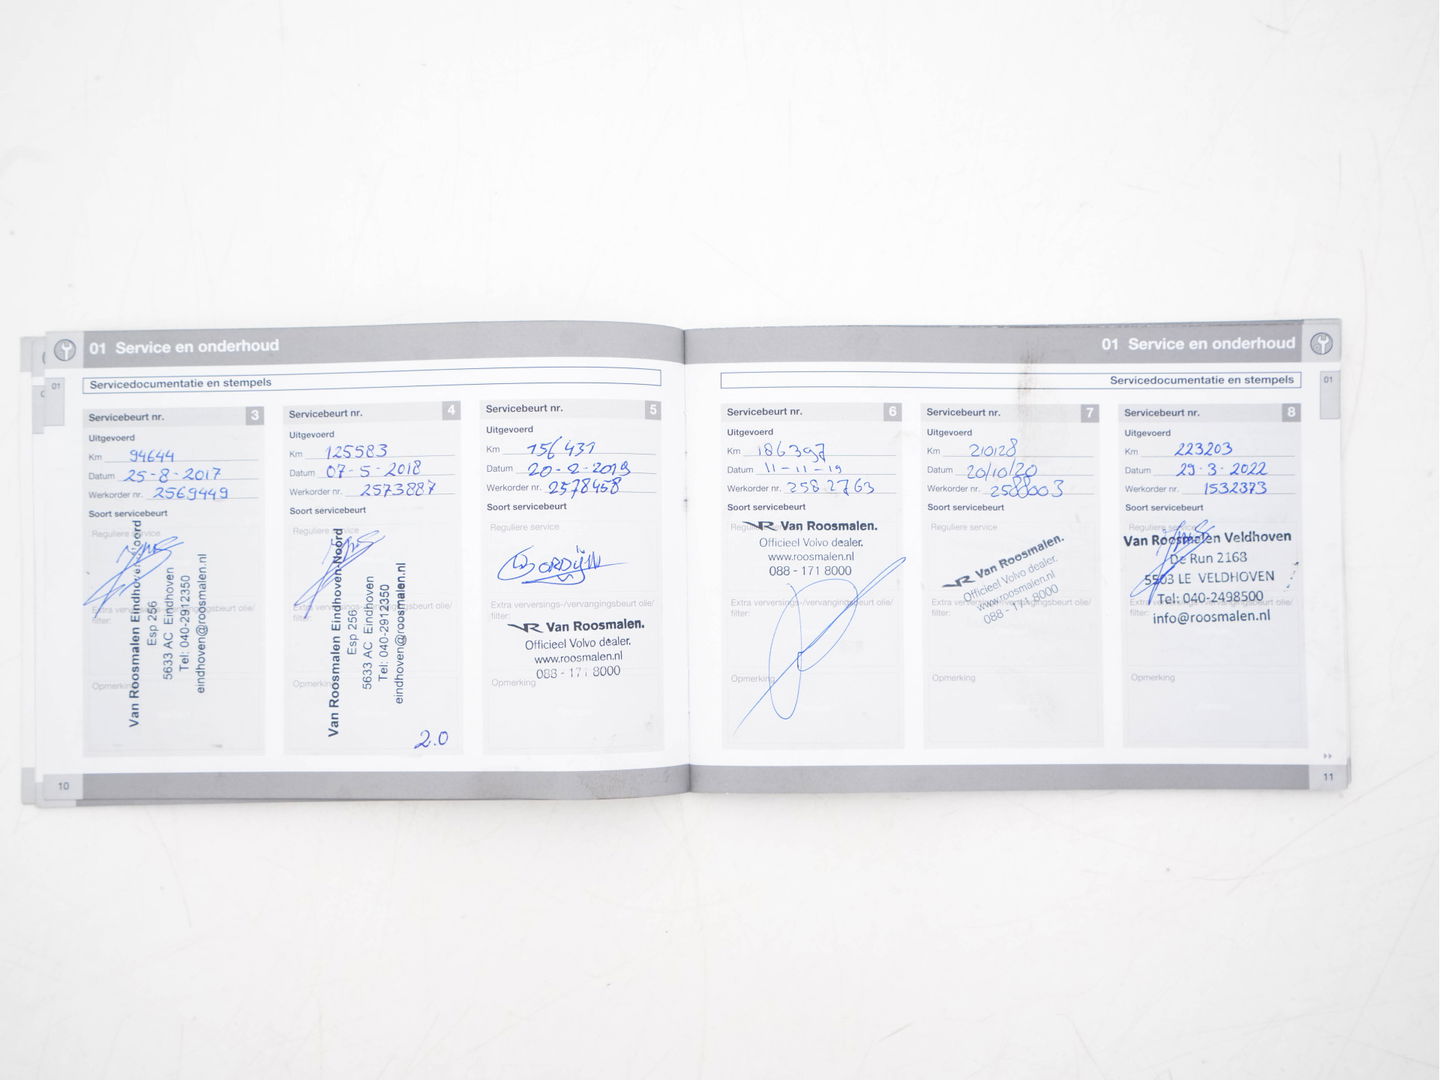 01 Service en onderhoud
Servicedocumentatie en stempels
01
Servicebeurt nr. 3
Uitgevoerd
Km 94644
Datum 25-8-2017
Werkorder nr. 2569449
Soort servicebeurt
Reguliere service
Extra verversings-/vervangingsbeurt olie/
filter:
Opmerking
Van Roosmalen Eindhoven-Noord
Esp 256
5633 AC Eindhoven
Tel: 040-2912350
eindhoven@roosmalen.nl
Servicebeurt nr. 4
Uitgevoerd
Km 125583
Datum 07-5-2018
Werkorder nr. 2573887
Soort servicebeurt
Reguliere service
Extra verversings-/vervangingsbeurt olie/
filter:
Opmerking
Van Roosmalen Eindhoven-Noord
Esp 256
5633 AC Eindhoven
Tel: 040-2912350
eindhoven@roosmalen.nl
2.0
Servicebeurt nr. 5
Uitgevoerd
Km 156431
Datum 20-2-2019
Werkorder nr. 2578458
Soort servicebeurt
Reguliere service
Extra verversings-/vervangingsbeurt olie/
filter:
VR Van Roosmalen.
Officieel Volvo dealer.
www.roosmalen.nl
088 - 171 8000
Opmerking
10
01 Service en onderhoud
Servicedocumentatie en stempels
01
Servicebeurt nr. 6
Uitgevoerd
Km 186397
Datum 11-11-19
Werkorder nr. 2582763
Soort servicebeurt
VR Van Roosmalen.
Officieel Volvo dealer.
www.roosmalen.nl
088 - 171 8000
Extra verversings-/vervangingsbeurt olie/
filter:
Opmerking
Servicebeurt nr. 7
Uitgevoerd
Km 210128
Datum 20/10/20
Werkorder nr. 2588003
Soort servicebeurt
Reguliere service
VR Van Roosmalen.
Officieel Volvo dealer.
www.roosmalen.nl
088 - 171 8000
Extra verversings-/vervangingsbeurt olie/
filter:
Opmerking
Servicebeurt nr. 8
Uitgevoerd
Km 223203
Datum 29-3-2022
Werkorder nr. 1532373
Soort servicebeurt
Reguliere service
Van Roosmalen Veldhoven
De Run 2163
5503 LE VELDHOVEN
Tel: 040-2498500
info@roosmalen.nl
Extra verversings-/vervangingsbeurt olie/
filter:
Opmerking
11